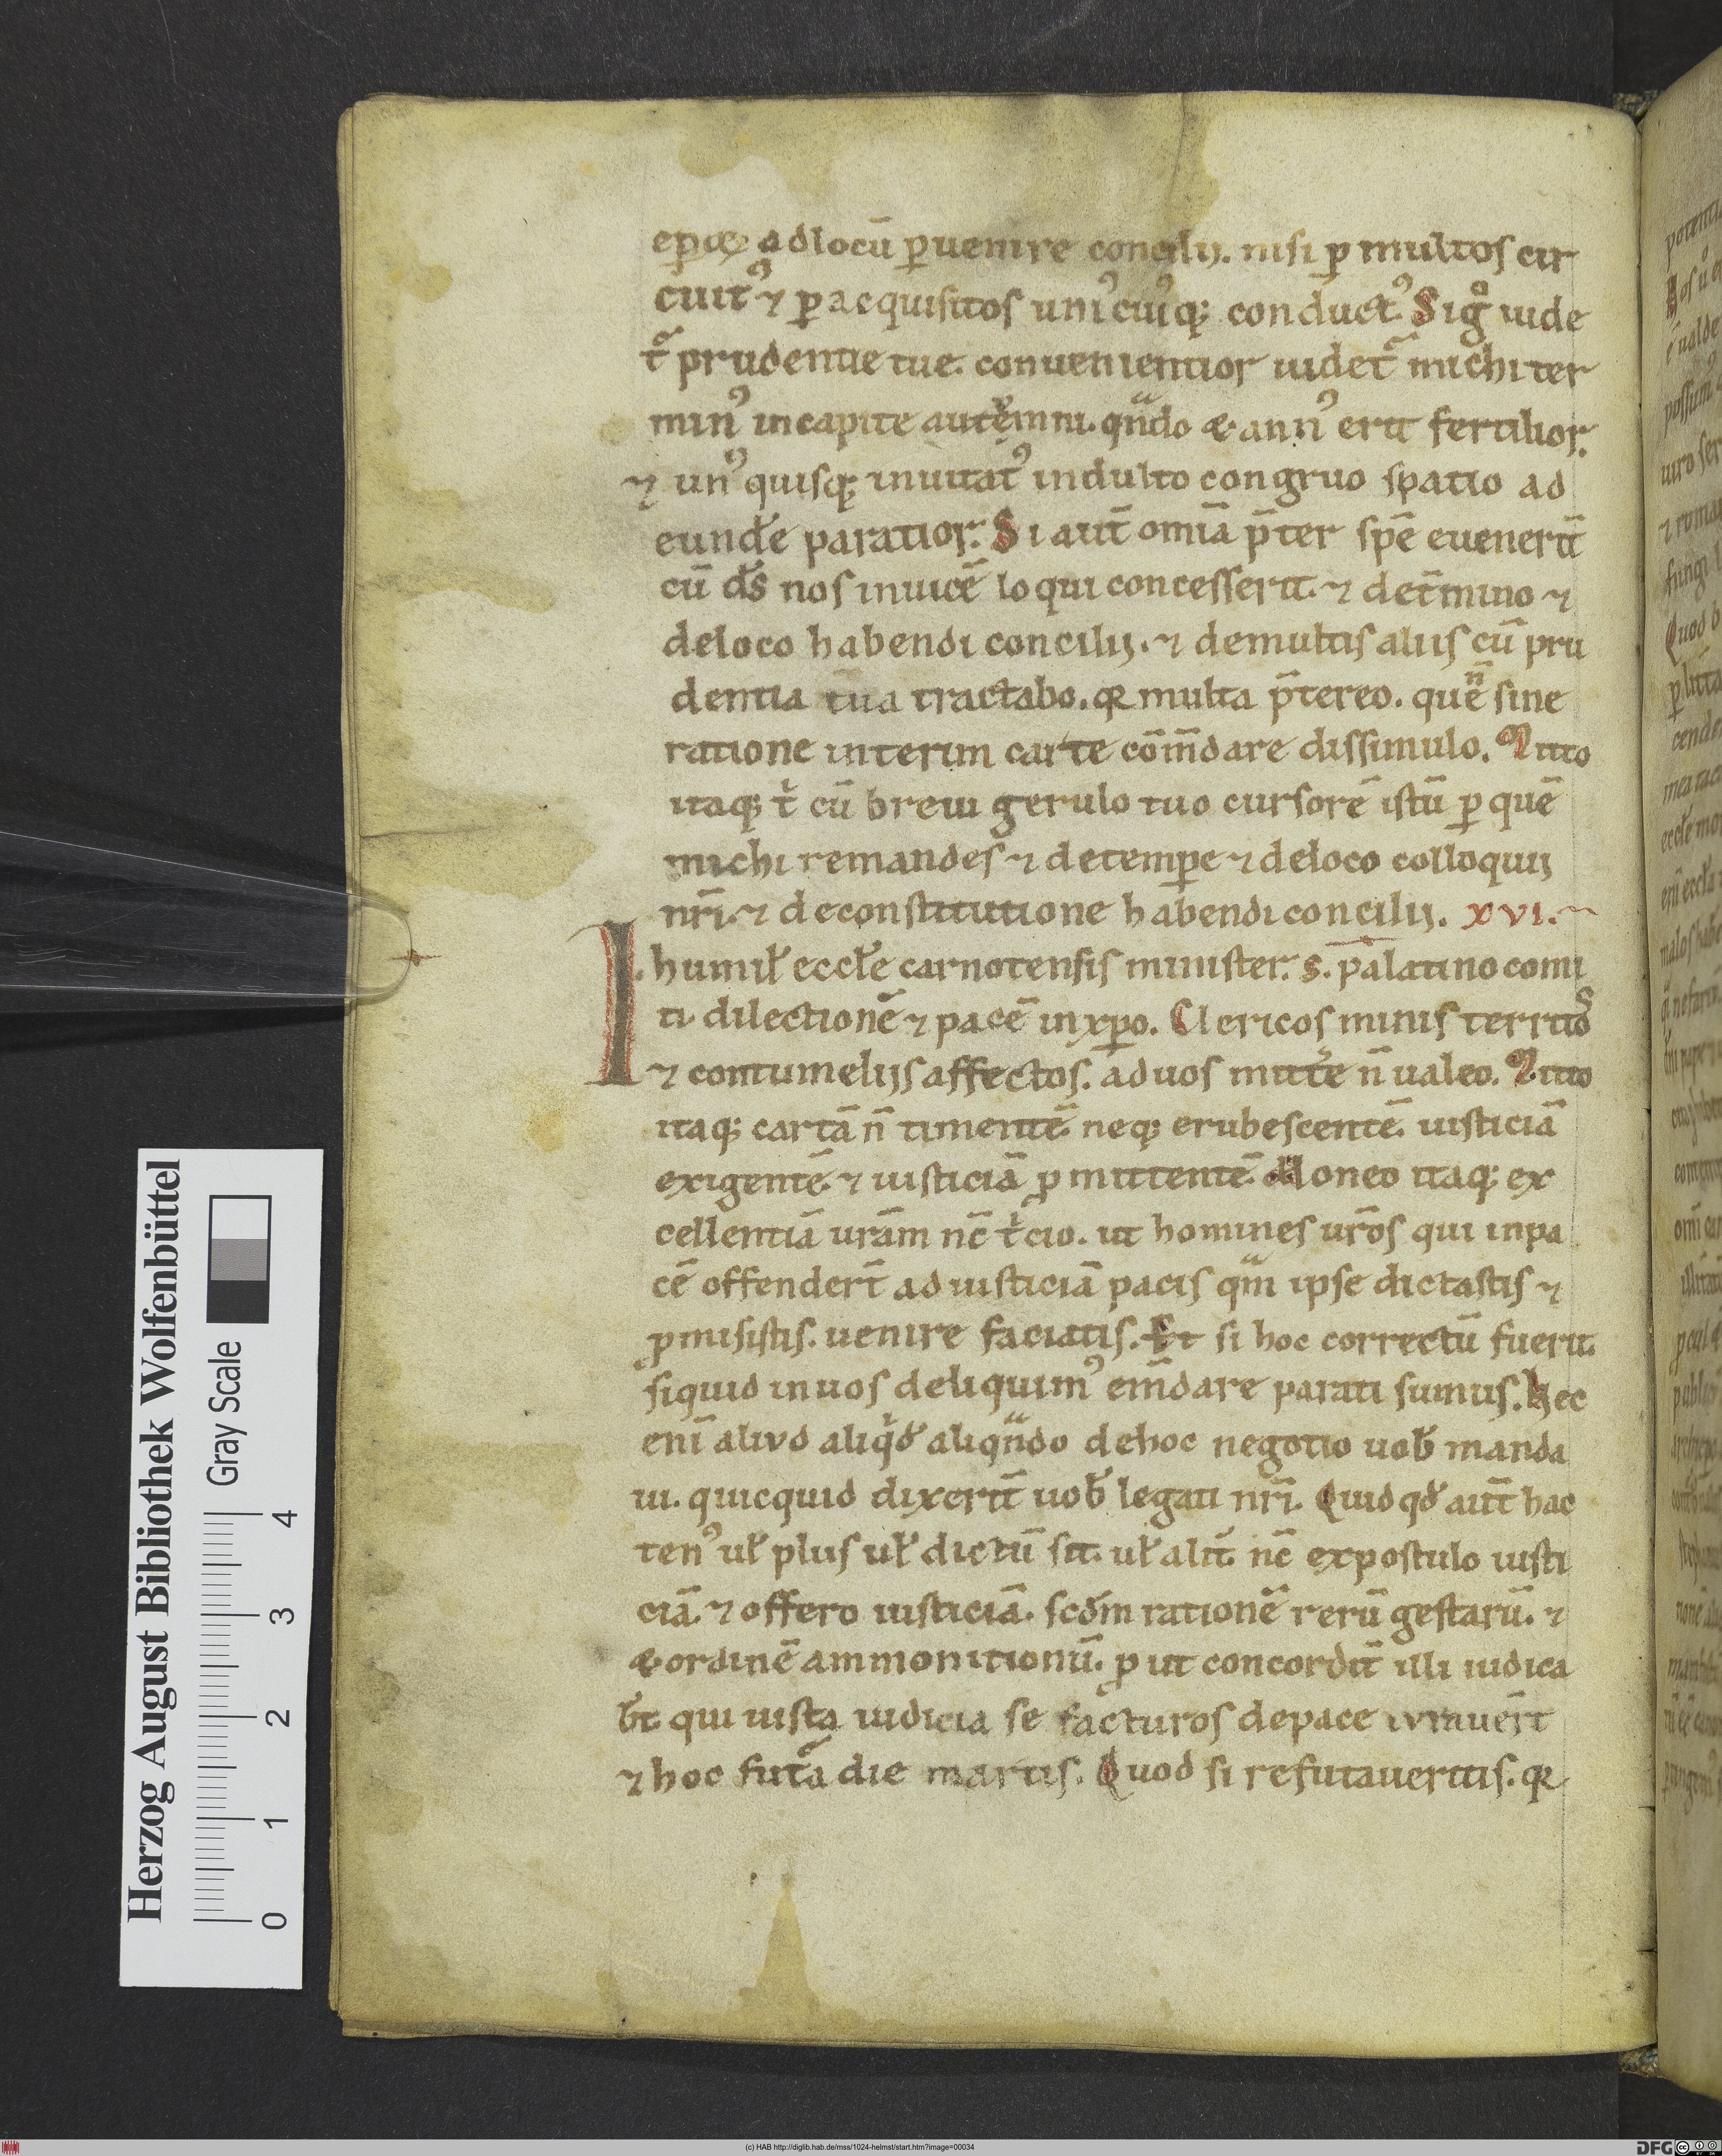 ep̄oꝝ adlocū ꝑuenire concilij. nisi ꝑ multos cir
cuitꝰ ⁊ ꝑ acquisitos uniꝰcuiꝰq; conductꝰ. Sigͦ uide
t᷑ prudentie tue. conuenientior uidet᷑ michi ter
minꝰ incapite autēmni. qn̄do & annꝰ erit fertilior.
⁊ unꝰquisq; inuitatꝰ indulto congruo spatio ad
eund̄e paratior. Si aut̄ omīa p̄ter spē euenerit̄
cū d̄s nos inuicē loqui concesserit. ⁊ det̄mino ⁊
deloco habendi concilij. ⁊ demultis aliis cū pru
dentia tua tractabo. qꝛ multa p̄tereo. quē n̄ sine
ratione interim carte cōm̄dare dissimulo. Mitto
itaq; t̓ cū breui gerulo tuo cursorē istū ꝑ quē
michi remandes ⁊ detemꝑe ⁊ deloco colloquij
nr̄i. ⁊ deconstitutione habendi concilij. xvi.
I. humił eccłe carnotensis minister. s. palatino comi
ti dilectionē ⁊ pacē inxp̄o. Clericos minis territos
⁊ contumelijs affectos. ad uos mitt̄e n̄ ualeo. Mitto
itaq; cartā n̄ timentē. neq; erubescentē. iusticiā
exigentē. ⁊ iusticiā ꝓmittentē. Moneo itaq; ex
cellentiā urām nc̄ t̓cio. ut homines ur̄os qui inpa
cē offendert̄ ad iusticiā pacis qm̄ ipse dictastis ⁊
ꝓmisistis. uenire faciatis. Et si hoc correctū fuerit.
siquid inuos deliquimꝰ em̄dare parati sumus. Hec
eni᷑ aliud aliq̓d aliqn̄do dehoc negotio uob̄ manda
ui. quicquid dixerit̄ uob̄ legati nr̄i. Quid qd̓ aut̄ hac
tenꝰ uł plus uł dictū sit. uł alit̄. nc̄ expostulo iusti
ciā. ⁊ offero iusticiā. scd̓m rationē rerū gestarū. ⁊
& ordinē ammonitionū. ꝓut concordit̄ illi iudica
bt̄ qui iusta iudicia se facturos depace iurauer̄t
⁊ hoc fut᷑a die martis. Quod si refutaueritis. qꝛ
Herzog August Bibliothek Wolfenbüttel
Gray Scale
0 1 2 3 4
(c) HAB http://diglib.hab.de/mss/1024-helmst/start.htm?image=00034
DFG